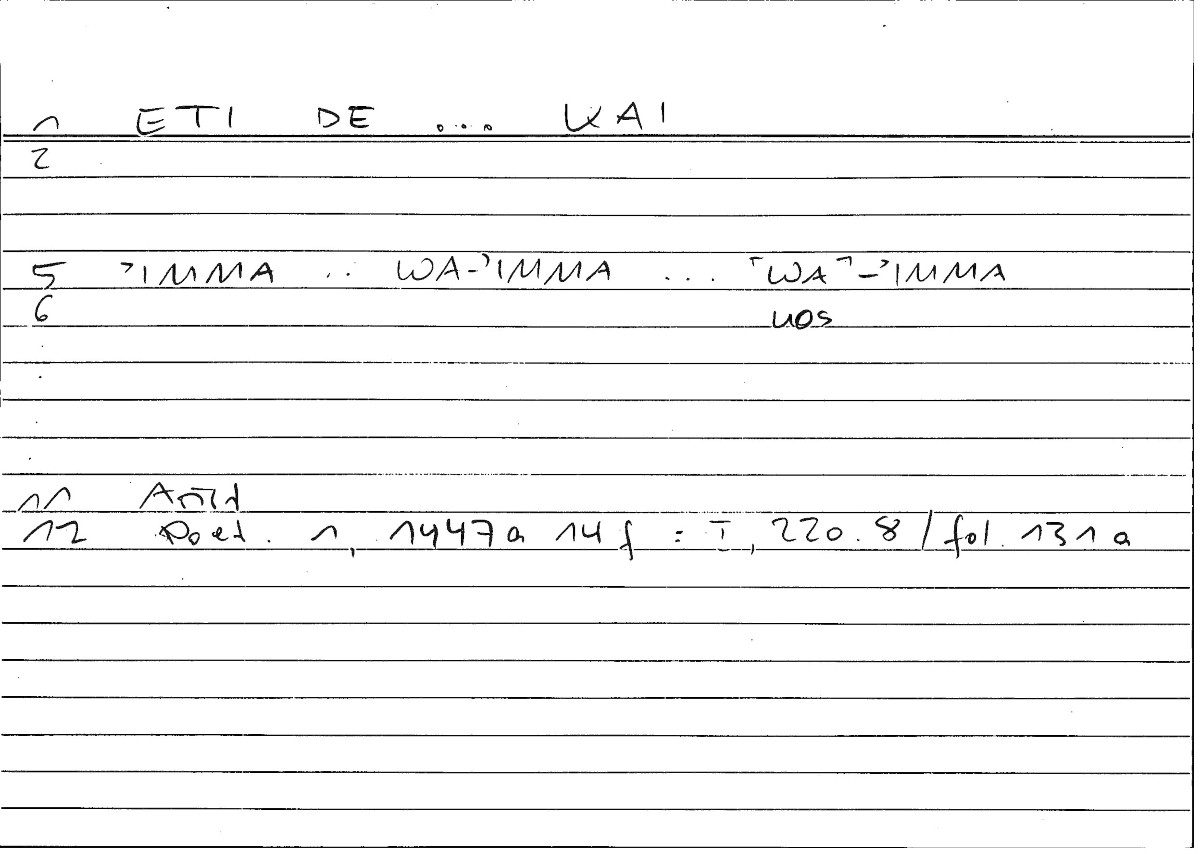 1 ETI DE .... KAI
2
5 ʾIMMA .. WA-ʾIMMA ... ⸢WA⸣-ʾIMMA
6 nos
11 Arist
12 Poet. 1, 1447a 14 f = I, 220.8 / fol. 131a